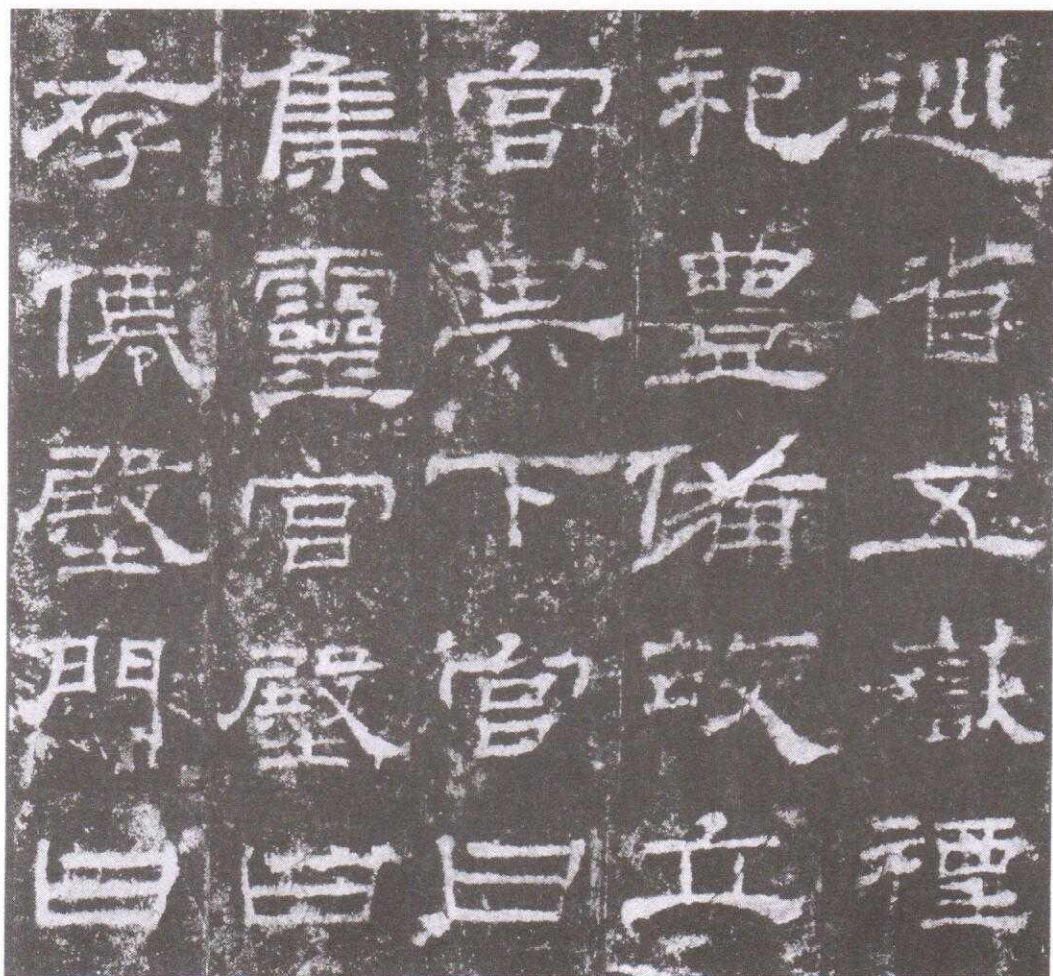 巡省五嶽禋
祀豐備故立
宮其下宮曰
集靈宮壂曰
存僊壂門曰